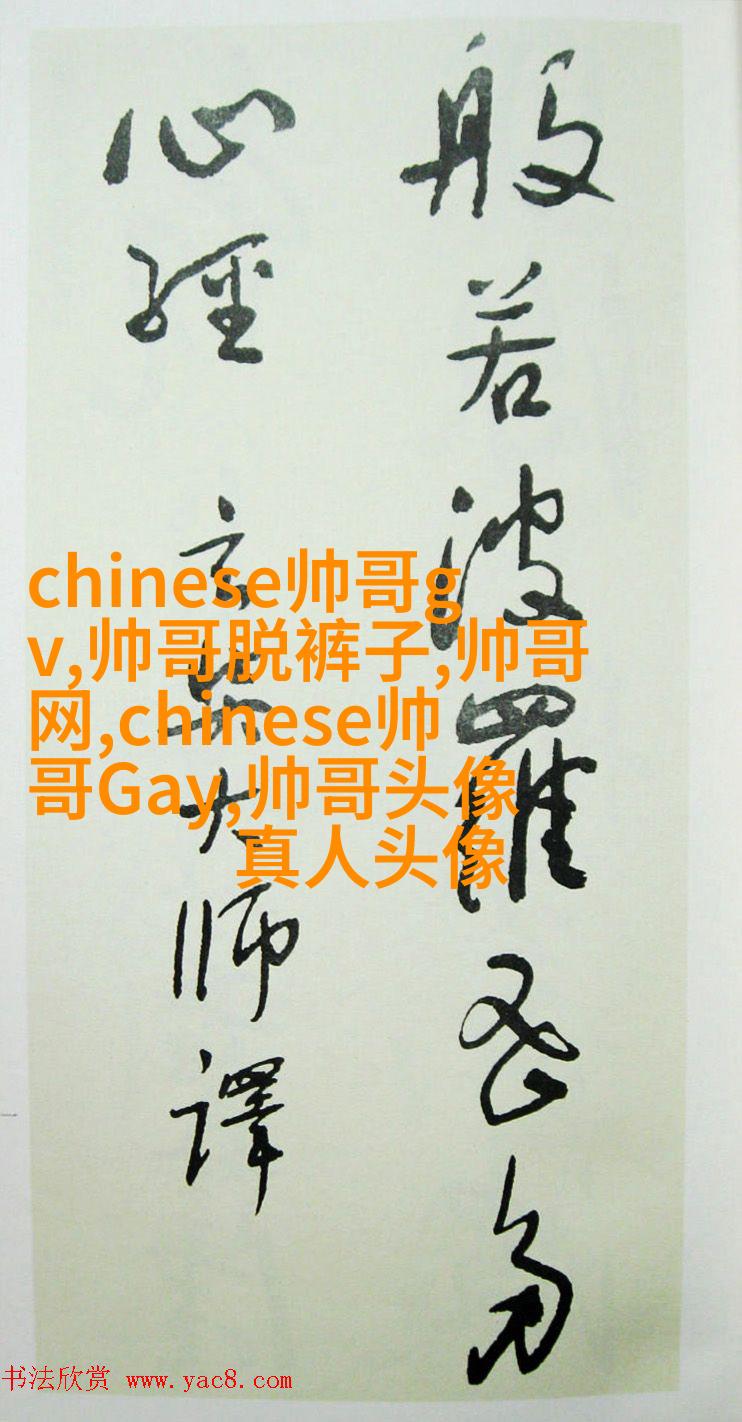 般若波羅蜜多
心經 玄奘大師譯
chinese帅哥g
v,帅哥脱裤子,帅哥
网,chinese帅
哥Gay,帅哥头像
真人头像
书法欣赏 www.yac8.com